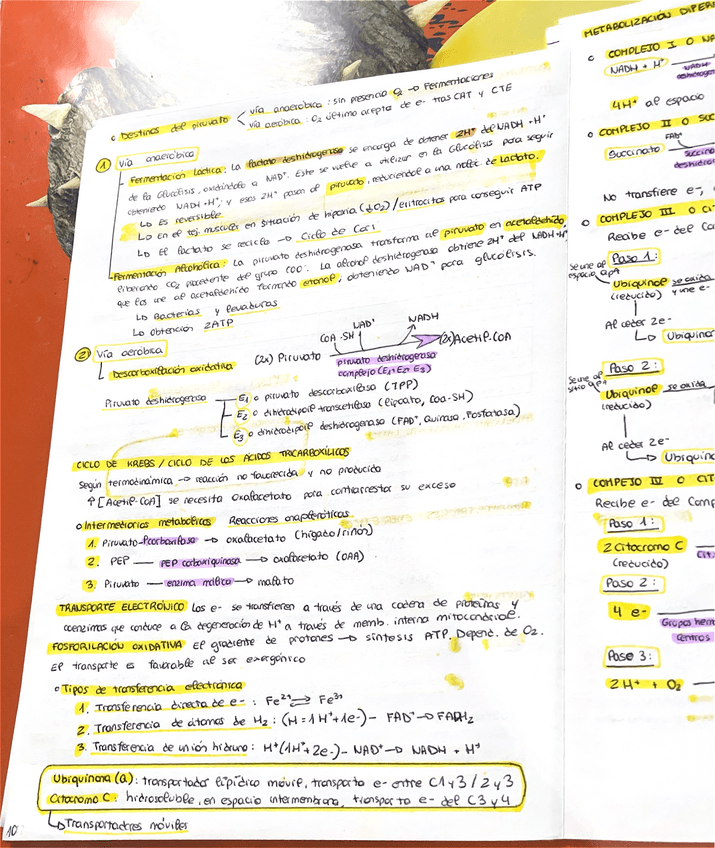 o Destinos del piruvato
vía anaeróbica: sin presencia O2 → Fermentaciones
vía aeróbica: O2 último acepta de e- tras CAT y CTE
1 Vía anaeróbica
Fermentación Láctica: La lactato deshidrogenasa se encarga de obtener 2H+ del NADH + H+
de la Glucólisis, oxidándolo a NAD+. Este se vuelve a utilizar en la Glucólisis para seguir
obteniendo NADH + H+; y esos 2H+ pasan al piruvato, reduciéndole a una moléc. de Lactato.
↳ Es reversible.
↳ En el tej. muscular en situación de hipoxia (↓O2)/eritrocitos para conseguir ATP
↳ El lactato se recicla → Ciclo de Cori
Fermentación Alcohólica: La piruvato deshidrogenasa transforma al piruvato en acetaldehído
liberando CO2 procedente del grupo COO-. La alcohol deshidrogenasa obtiene 2H+ del NADH + H+
que los une al acetaldehído formando etanol, obteniendo NAD+ para glucólisis.
↳ Bacterias y levaduras
↳ Obtención 2ATP
2 Vía aeróbica
↳ Descarboxilación oxidativa
CoA-SH NAD+ NADH
(2x) Piruvato (2x) Acetil-CoA
piruvato deshidrogenasa
complejo (E1 E2 E3)
Piruvato deshidrogenasa
E1 o piruvato descarboxilasa (TPP)
E2 o dihidrolipoil transcetilasa (lipoato, CoA-SH)
E3 o dihidrolipoil deshidrogenasa (FAD+,
CICLO DE KREBS / CICLO DE LOS ÁCIDOS TRICARBOXÍLICOS
Según termodinámica → reacción no favorecida y no producida
↑ [Acetil-CoA] se necesita Oxalacetato para contrarrestar su exceso
o Intermediarios metabólicos Reacciones anapleróticas
1. Piruvato-Pcarboxilasa → oxalacetato (hígado/riñón)
2. PEP — PEP carboxiquinasa → oxalacetato (OAA)
3. Piruvato — enzima málica → malato
TRANSPORTE ELECTRÓNICO Los e- se transfieren a través de una cadena de proteínas y
coenzimas que conduce a la degeneración de H+ a través de memb. interna mitocondrial.
FOSFORILACIÓN OXIDATIVA El gradiente de protones → síntesis ATP. Depend. de O2.
El transporte es favorable al ser exergónico
o Tipos de transferencia electrónica
1. Transferencia directa de e-: Fe2+ ⇄ Fe3+
2. Transferencia de átomos de H2: (H = 1H+ + 1e-) - FAD+ → FADH2
3. Transferencia de unión hidruro: H+(1H+ + 2e-) - NAD+ → NADH + H+
Ubiquinona (Q): transportador lipídico móvil, transporta e- entre C1 y 3 / 2 y 3
Citocromo C: hidrosoluble, en espacio intermembrana, transporta e- del C3 y 4
↳ Transportadores móviles
10
METABOLIZACIÓN
o COMPLEJO I O
NADH + H+
4H+ al espacio
o COMPLEJO II O
FAD+
Succinato
No transfiere e-,
o COMPLEJO III O
Recibe e- del
Paso 1:
Se une al
espacio
Ubiquinol se oxida
(reducido) y une e-
Al ceder 2e-
↳
Paso 2:
Se une al
sitio
Ubiquinol se oxida
(reducido)
Al ceder 2e-
↳
o COMPEJO IV O
Recibe e- del
Paso 1:
2 Citocromo C
(reducido)
Paso 2:
4 e-
Grupos
Centros
Paso 3:
2 H+ + O2